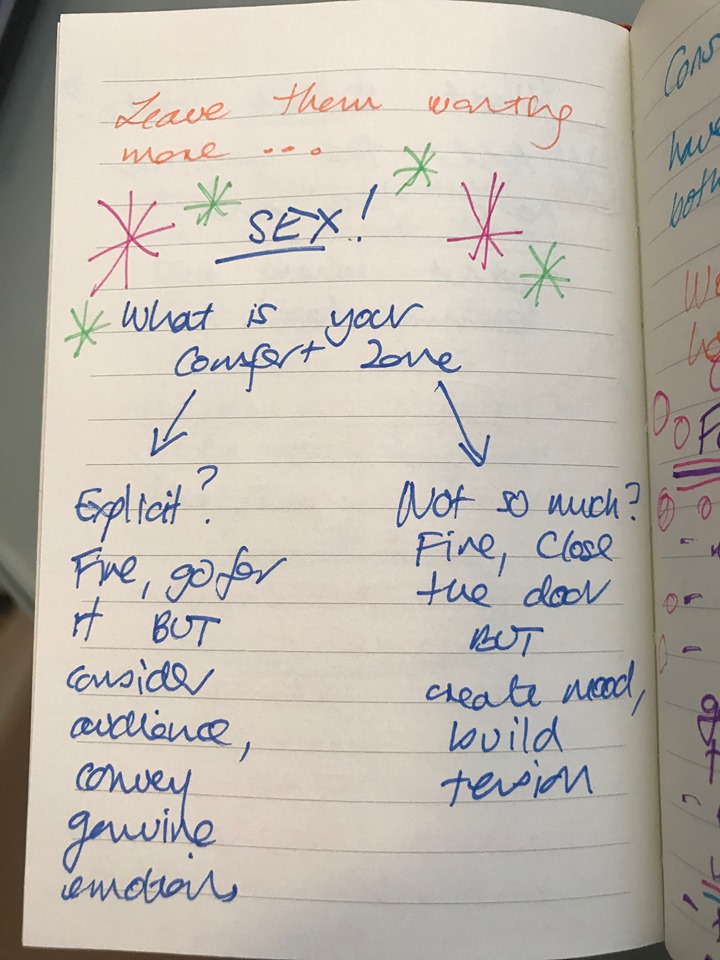 Leave them wanting
more ...
SEX!
What is your
comfort zone
Explicit?
Fine, go for
it BUT
consider
audience,
convey
genuine
emotions
Not so much?
Fine, close
the door
BUT
create mood,
build
tension
Cons
have
both
We